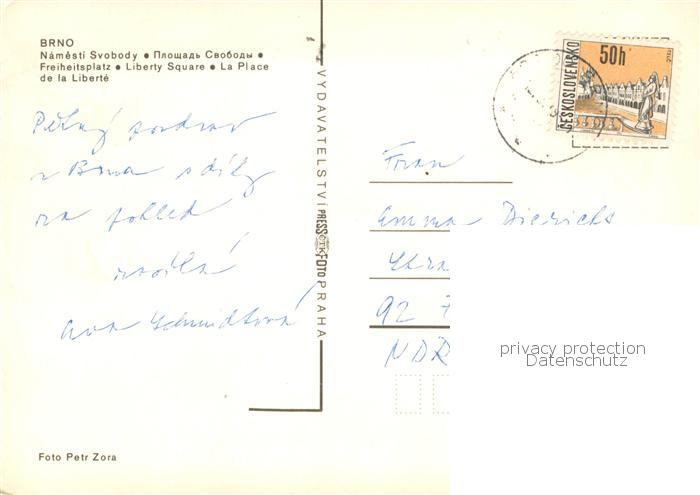 BRNO
Náměstí Svobody • Площадь Свободы •
Freiheitsplatz • Liberty Square • La Place
de la Liberté
Pěkný pozdrav
z Brna s díky
za pohled
zasílá
Eva Schmidtová
VYDAVATELSTVÍ PRESSFOTO PRAHA
ČTK
50h
ČESKOSLOVENSKO
TELČ
Frau
Emma Dierichs
92
NDR
privacy protection
Datenschutz
Foto Petr Zora